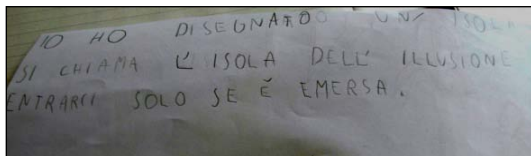 IO HO DISEGNATO UN' ISOLA
SI CHIAMA L' ISOLA DELL' ILLUSIONE
ENTRARCI SOLO SE É EMERSA.